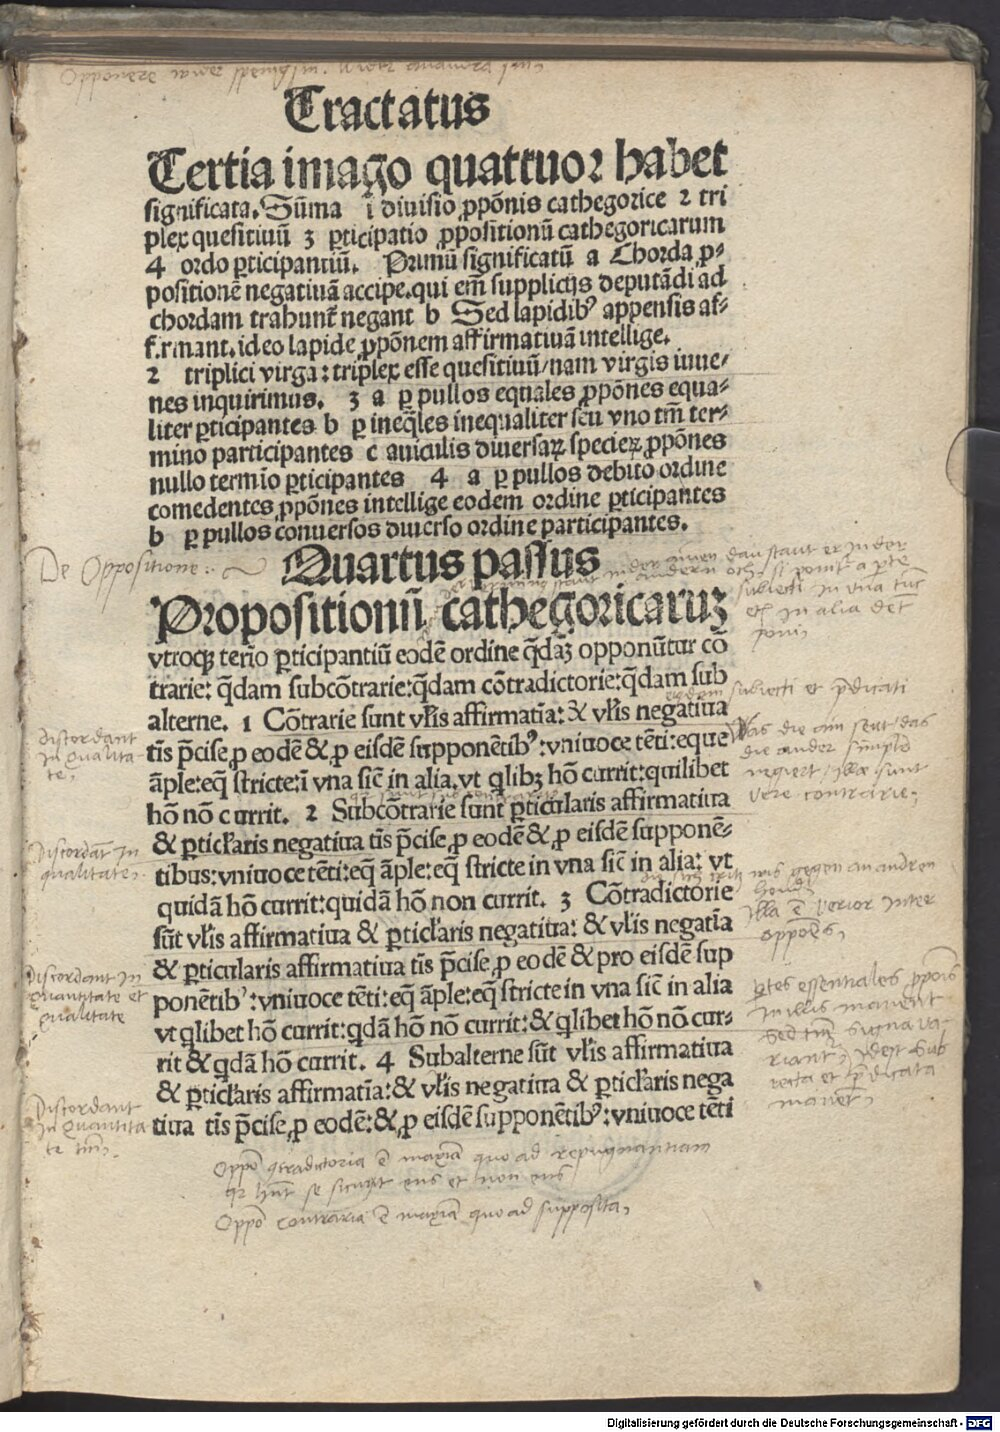 Tractatus
Tertia imago quattuor habet
significata. Sūma ī diuisio ꝓpōnis cathegorice 2 tri
plex quesitiuū 3 ꝑticipatio ꝓpositionū cathegoricarum
4 ordo ꝑticipantiū. Primū significatū a Chorda ꝓ-
positionē negatiuā accipe. qui em̄ supplicijs deputādi ad
chordam trahunt᷑ negant b Sed lapidibꝰ appensis af-
f.rmant. ideo lapide ꝓpōnem affirmatiuā intellige.
2 triplici virga: triplex esse quesitiuū/nam virgis iuue/
nes inquirimus. 3 a ꝑ pullos equales ꝓpōnes equa-
liter ꝑticipantes b ꝑ ineq̄les inequaliter seu vno tm̄ ter-
mino participantes c auiculis diuersaꝝ specieꝝ ꝓpōnes
nullo termīo ꝑticipantes 4 a ꝑ pullos debito ordine
comedentes ꝓpōnes intellige eodem ordine ꝑticipantes
b ꝑ pullos conuersos diuerso ordine participantes.
De Oppositione
Quartus passus
Propositionū cathegoricaruꝫ
vtroqꝫ term̄o ꝑticipantiū eodē ordine q̄dāꝫ opponūtur cō
trarie: q̄dam subcōtrarie: q̄dam cōtradictorie: q̄dam sub
alterne. 1 Cōtrarie sunt vl̄is affirmatīa: & vl̄is negatiua
tīs p̄cise, ꝓ eodē & ꝓ eisdē supponētibꝰ: vniuoce tēti: eque
āple: eq̄ stricte: ī vna sic̄ in alia. vt q̄libꝫ hō currit: quilibet
hō nō currit. 2 Subcōtrarie sunt ꝑticularis affirmatiua
& ꝑticl̄aris negatiua tīs p̄cise, ꝓ eodē & ꝓ eisdē supponē-
tibus: vniuoce tēti: eq̄ āple: eq̄ stricte in vna sic̄ in alia: vt
quidā hō currit: quidā hō non currit. 3 Cōtradictorie
sūt vl̄is affirmatiua & ꝑticl̄aris negatiua: & vl̄is negatīa
& ꝑticularis affirmatiua tīs p̄cise, ꝓ eodē & pro eisdē sup
ponētibꝰ: vniuoce tēti: eq̄ āple: eq̄ stricte in vna sic̄ in alia
vt q̄libet hō currit: q̄dā hō nō currit: & q̄libet hō nō cur-
rit & q̄dā hō currit. 4 Subalterne sūt vl̄is affirmatiua
& ꝑticl̄aris affirmatīa: & vl̄is negatiua & ꝑticl̄aris nega
tiua tīs p̄cise, ꝓ eodē: & ꝓ eisdē supponētibꝰ: vniuoce tēti
Discordant
in qualita
te
Discordāt in
qualitate
Discordant in
quantitate et
qualitate
Discordant
in quantita
te tm̄
subiecti et p̄dicati
die ander simplꝭ
negiert / illae sunt
vere contrarie
illa ē verior inter
ꝑtes essentiales
in illis manent
sed tm̄ signa va
riant
manet
Oppō ꝯtradictoria ē maxīa quo ad repugnantiam
ens et non ens
Oppō contraria ē maxīa quo ad supposita
Digitalisierung gefördert durch die Deutsche Forschungsgemeinschaft - DFG